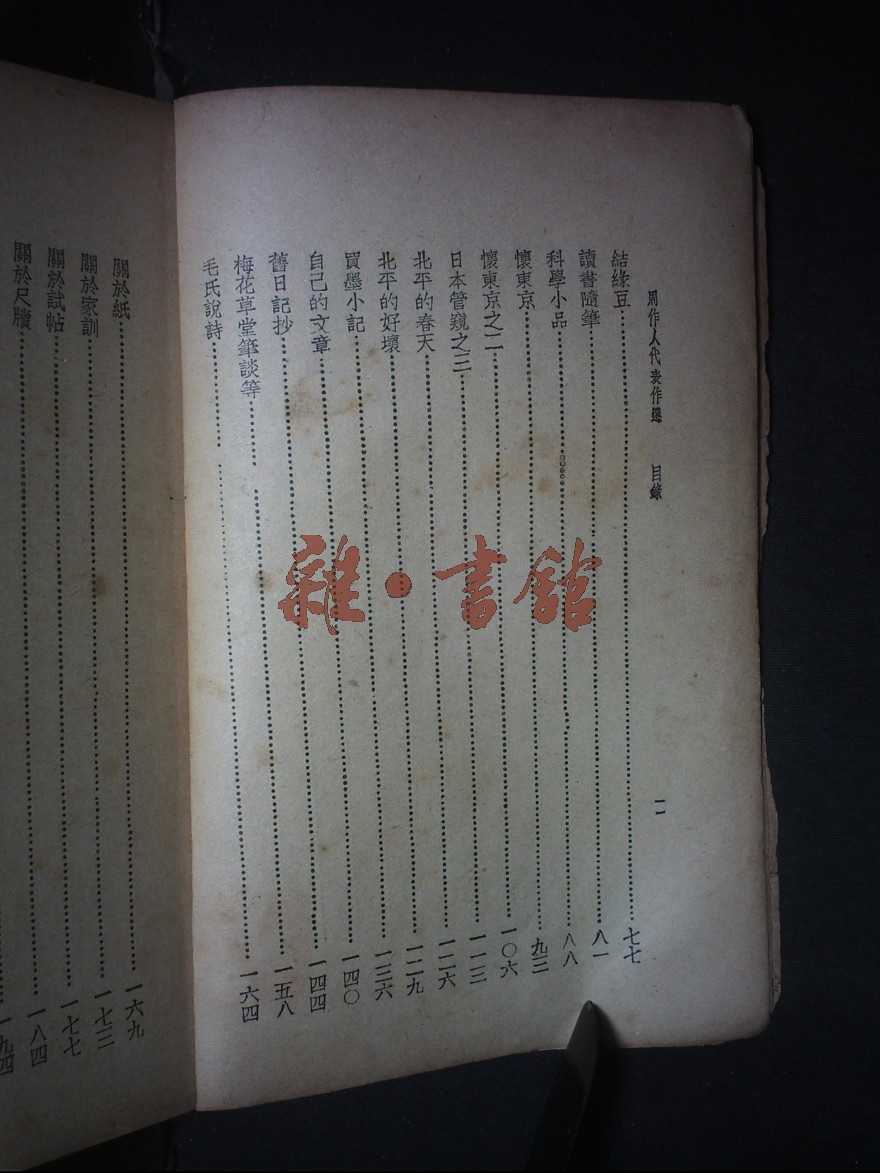 周作人代表作選 目錄 二
結緣豆……七七
讀書隨筆……八一
科學小品……八八
懷東京……九三
懷東京之二……一〇六
日本管窺之三……一一三
北平的春天……一二六
北平的好壞……一二九
買墨小記……一三六
自己的文章……一四〇
舊日記抄……一四四
梅花草堂筆談等……一五八
毛氏說詩……一六四
關於紙……一六九
關於家訓……一七三
關於試帖……一七七
關於尺牘……一八四
一九四
雜·書館